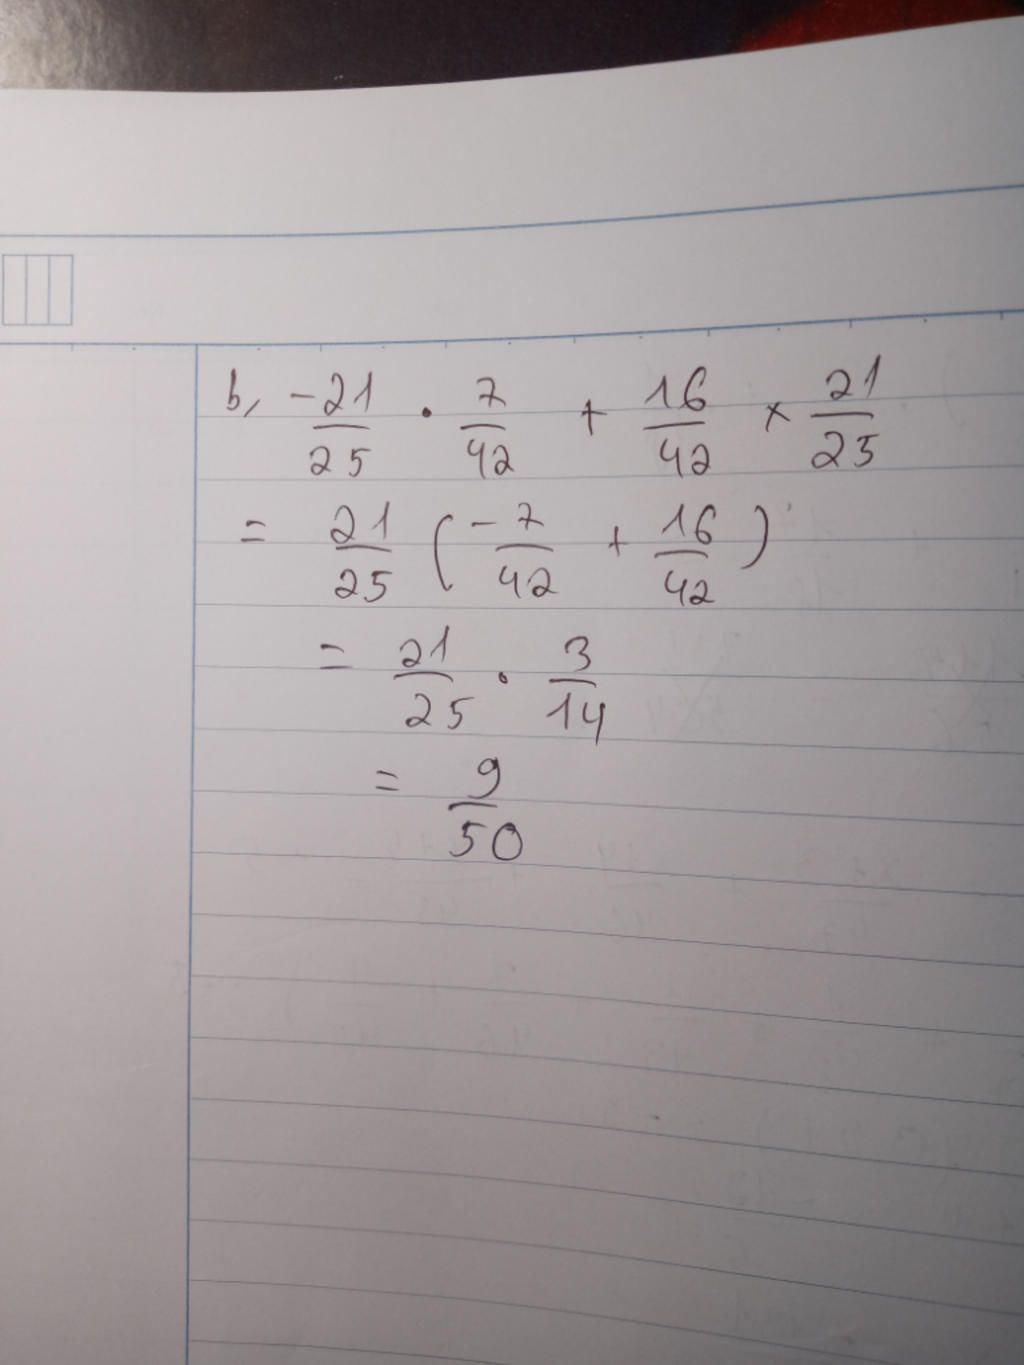 b, -21/25 . 7/42 + 16/42 × 21/25
= 21/25 (-7/42 + 16/42)
= 21/25 . 3/14
= 9/50